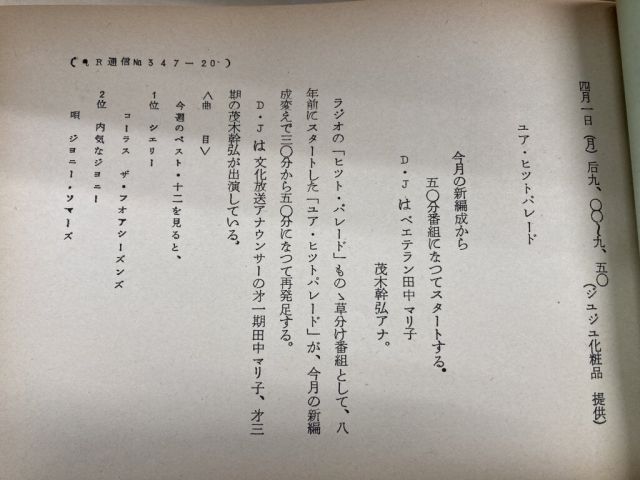 四月一日(月)后九、〇〇〜九、五〇 (ジユジユ化粧品 提供)
ユア・ヒツトパレード
今月の新編成から
五〇分番組になつてスタートする。
D・Jはベエテラン田中マリ子
茂木幹弘アナ。
ラジオの「ヒツト・パレード」ものゝ草分け番組として、八
年前にスタートした「ユア・ヒツトパレード」が、今月の新編
成変えで三〇分から五〇分になつて再発足する。
D・Jは文化放送アナウンサーの才一期田中マリ子、才三
期の茂木幹弘が出演している。
＜曲 目＞
今週のベスト・十二を見ると、
1位 シエリー
コーラス ザ・フオアシーズンズ
2位 内気なジヨニー
唄 ジヨニー・ソマーズ
(QR通信№347－20)